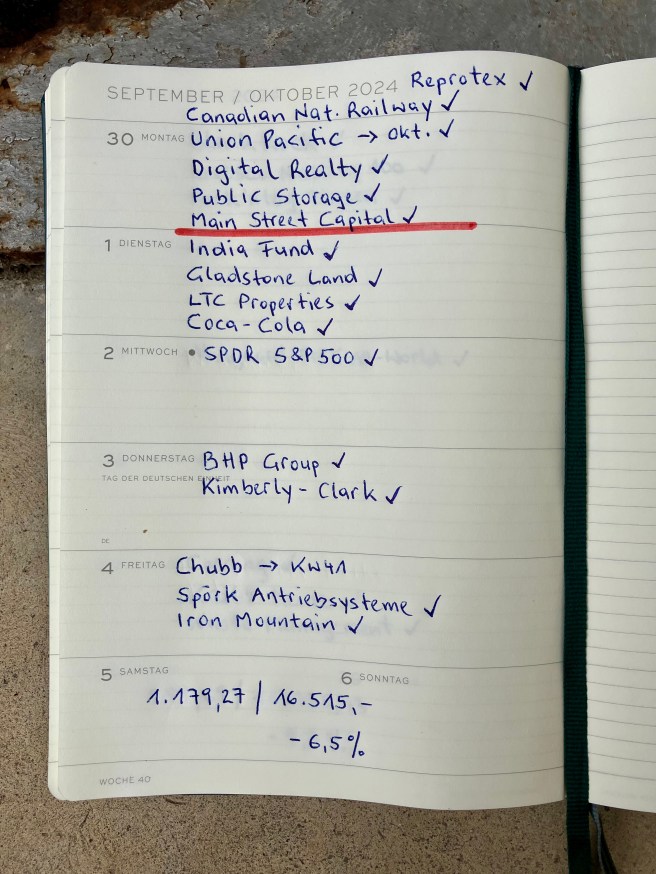 SEPTEMBER / OKTOBER 2024 Reprotex ✓
Canadian Nat. Railway ✓
30 MONTAG Union Pacific → Okt. ✓
Digital Realty ✓
Public Storage ✓
Main Street Capital ✓
1 DIENSTAG India Fund ✓
Gladstone Land ✓
LTC Properties ✓
Coca-Cola ✓
2 MITTWOCH • SPDR S&P 500 ✓
3 DONNERSTAG BHP Group ✓
TAG DER DEUTSCHEN EINHEIT
Kimberly-Clark ✓
DE
4 FREITAG Chubb → KW41
Spörk Antriebsysteme ✓
Iron Mountain ✓
5 SAMSTAG 6 SONNTAG
1.179,27 | 16.515,-
-6,5%
WOCHE 40